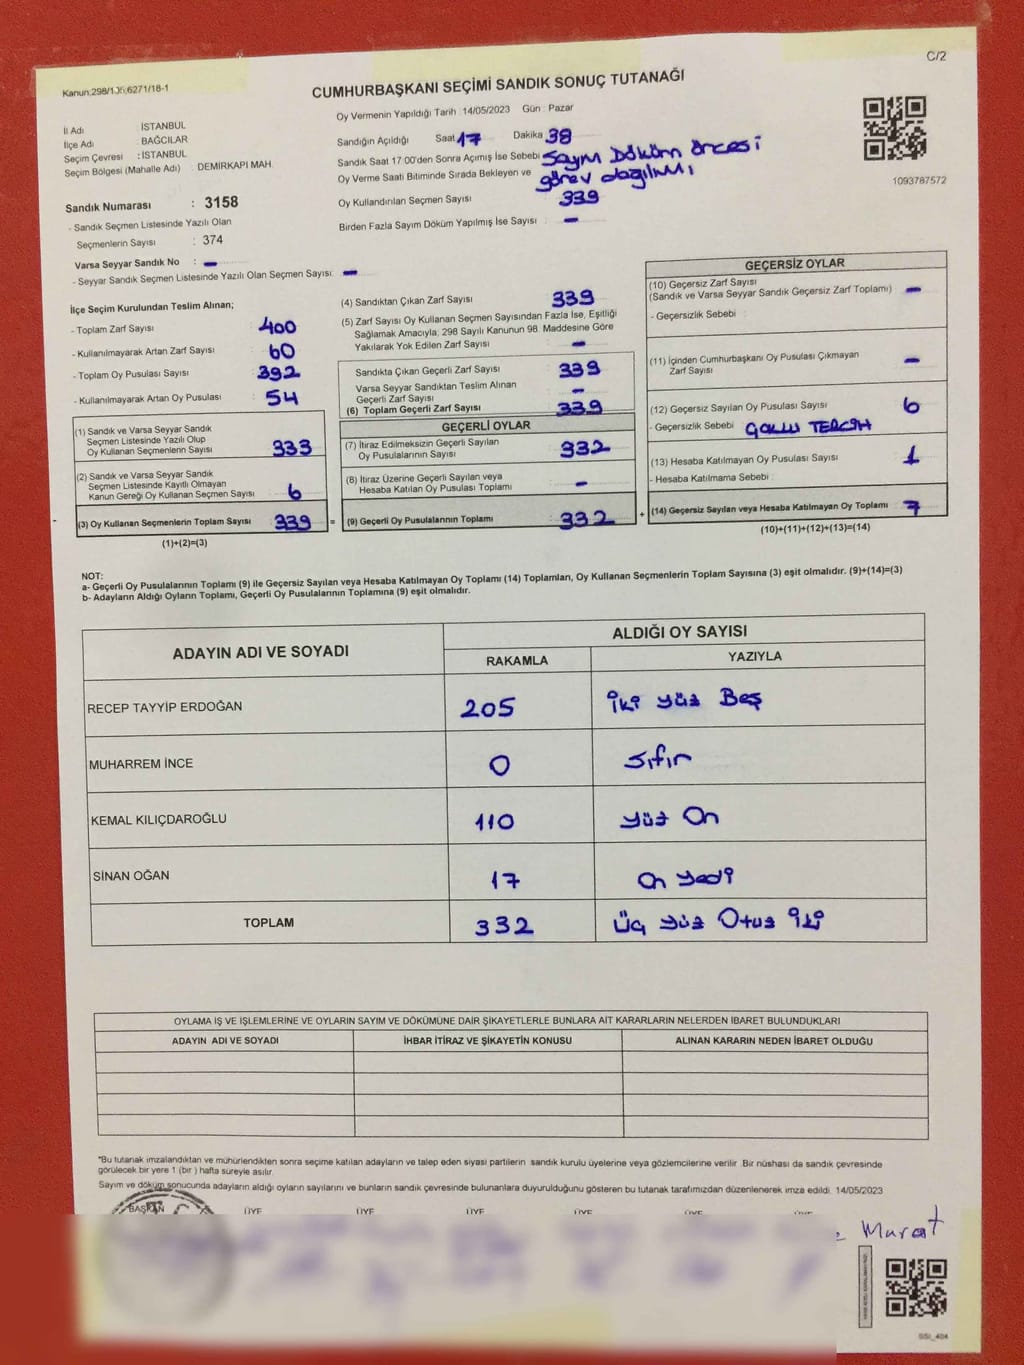 C/2
Kanun,298/106,6271/18-1
CUMHURBAŞKANI SEÇİMİ SANDIK SONUÇ TUTANAĞI
Oy Vermenin Yapıldığı Tarih : 14/05/2023 Gün : Pazar
İl Adı : İSTANBUL
İlçe Adı : BAĞCILAR
Seçim Çevresi : İSTANBUL
Seçim Bölgesi (Mahalle Adı) : DEMİRKAPI MAH.
Sandık Numarası : 3158
- Sandık Seçmen Listesinde Yazılı Olan
Seçmenlerin Sayısı : 374
Varsa Seyyar Sandık No : -
- Seyyar Sandık Seçmen Listesinde Yazılı Olan Seçmen Sayısı: -
Sandığın Açıldığı Saat 17 Dakika 38
Sandık Saat 17:00'den Sonra Açımış İse Sebebi Sayım Döküm öncesi
Oy Verme Saati Bitiminde Sırada Bekleyen ve görev dağılımı
Oy Kullandırılan Seçmen Sayısı 339
Birden Fazla Sayım Döküm Yapılmış İse Sayısı : -
1093787572
İlçe Seçim Kurulundan Teslim Alınan;
- Toplam Zarf Sayısı : 400
- Kullanılmayarak Artan Zarf Sayısı : 60
- Toplam Oy Pusulası Sayısı : 392
- Kullanılmayarak Artan Oy Pusulası : 54
(1) Sandık ve Varsa Seyyar Sandık
Seçmen Listesinde Yazılı Olup
Oy Kullanan Seçmenlerin Sayısı : 333
(2) Sandık ve Varsa Seyyar Sandık
Seçmen Listesinde Kayıtlı Olmayan
Kanun Gereği Oy Kullanan Seçmen Sayısı : 6
(3) Oy Kullanan Seçmenlerin Toplam Sayısı : 339 =
(1)+(2)=(3)
(4) Sandıktan Çıkan Zarf Sayısı : 339
(5) Zarf Sayısı Oy Kullanan Seçmen Sayısından Fazla İse, Eşitliği
Sağlamak Amacıyla, 298 Sayılı Kanunun 98. Maddesine Göre
Yakılarak Yok Edilen Zarf Sayısı : -
Sandıkta Çıkan Geçerli Zarf Sayısı : 339
Varsa Seyyar Sandıktan Teslim Alınan
Geçerli Zarf Sayısı : -
(6) Toplam Geçerli Zarf Sayısı : 339
GEÇERLİ OYLAR
(7) İtiraz Edilmeksizin Geçerli Sayılan
Oy Pusulalarının Sayısı : 332
(8) İtiraz Üzerine Geçerli Sayılan veya
Hesaba Katılan Oy Pusulası Toplamı : -
(9) Geçerli Oy Pusulalarının Toplamı : 332 +
GEÇERSİZ OYLAR
(10) Geçersiz Zarf Sayısı
(Sandık ve Varsa Seyyar Sandık Geçersiz Zarf Toplamı) : -
- Geçersizlik Sebebi :
(11) İçinden Cumhurbaşkanı Oy Pusulası Çıkmayan
Zarf Sayısı : -
(12) Geçersiz Sayılan Oy Pusulası Sayısı : 6
- Geçersizlik Sebebi : ÇOKLU TERCİH
(13) Hesaba Katılmayan Oy Pusulası Sayısı : 1
- Hesaba Katılmama Sebebi :
(14) Geçersiz Sayılan veya Hesaba Katılmayan Oy Toplamı : 7
(10)+(11)+(12)+(13)=(14)
NOT:
a- Geçerli Oy Pusulalarının Toplamı (9) ile Geçersiz Sayılan veya Hesaba Katılmayan Oy Toplamı (14) Toplamları, Oy Kullanan Seçmenlerin Toplam Sayısına (3) eşit olmalıdır. (9)+(14)=(3)
b- Adayların Aldığı Oyların Toplamı, Geçerli Oy Pusulalarının Toplamına (9) eşit olmalıdır.
ADAYIN ADI VE SOYADI
ALDIĞI OY SAYISI
RAKAMLA YAZIYLA
RECEP TAYYİP ERDOĞAN 205 iki yüz Beş
MUHARREM İNCE 0 sıfır
KEMAL KILIÇDAROĞLU 110 yüz On
SİNAN OĞAN 17 On yedi
TOPLAM 332 Üç yüz Otuz İki
OYLAMA İŞ VE İŞLEMLERİNE VE OYLARIN SAYIM VE DÖKÜMÜNE DAİR ŞİKAYETLERLE BUNLARA AİT KARARLARIN NELERDEN İBARET BULUNDUKLARI
ADAYIN ADI VE SOYADI İHBAR İTİRAZ VE ŞİKAYETİN KONUSU ALINAN KARARIN NEDEN İBARET OLDUĞU
*Bu tutanak imzalandıktan ve mühürlendikten sonra seçime katılan adayların ve talep eden siyasi partilerin sandık kurulu üyelerine veya gözlemcilerine verilir. Bir nüshası da sandık çevresinde
görülecek bir yere 1 (bir) hafta süreyle asılır.
Sayım ve döküm sonucunda adayların aldığı oyların sayılarını ve bunların sandık çevresinde bulunanlara duyurulduğunu gösteren bu tutanak tarafımızdan düzenlenerek imza edildi. 14/05/2023
BAŞKAN ÜYE ÜYE ÜYE ÜYE ÜYE ÜYE
Murat
SSI_404